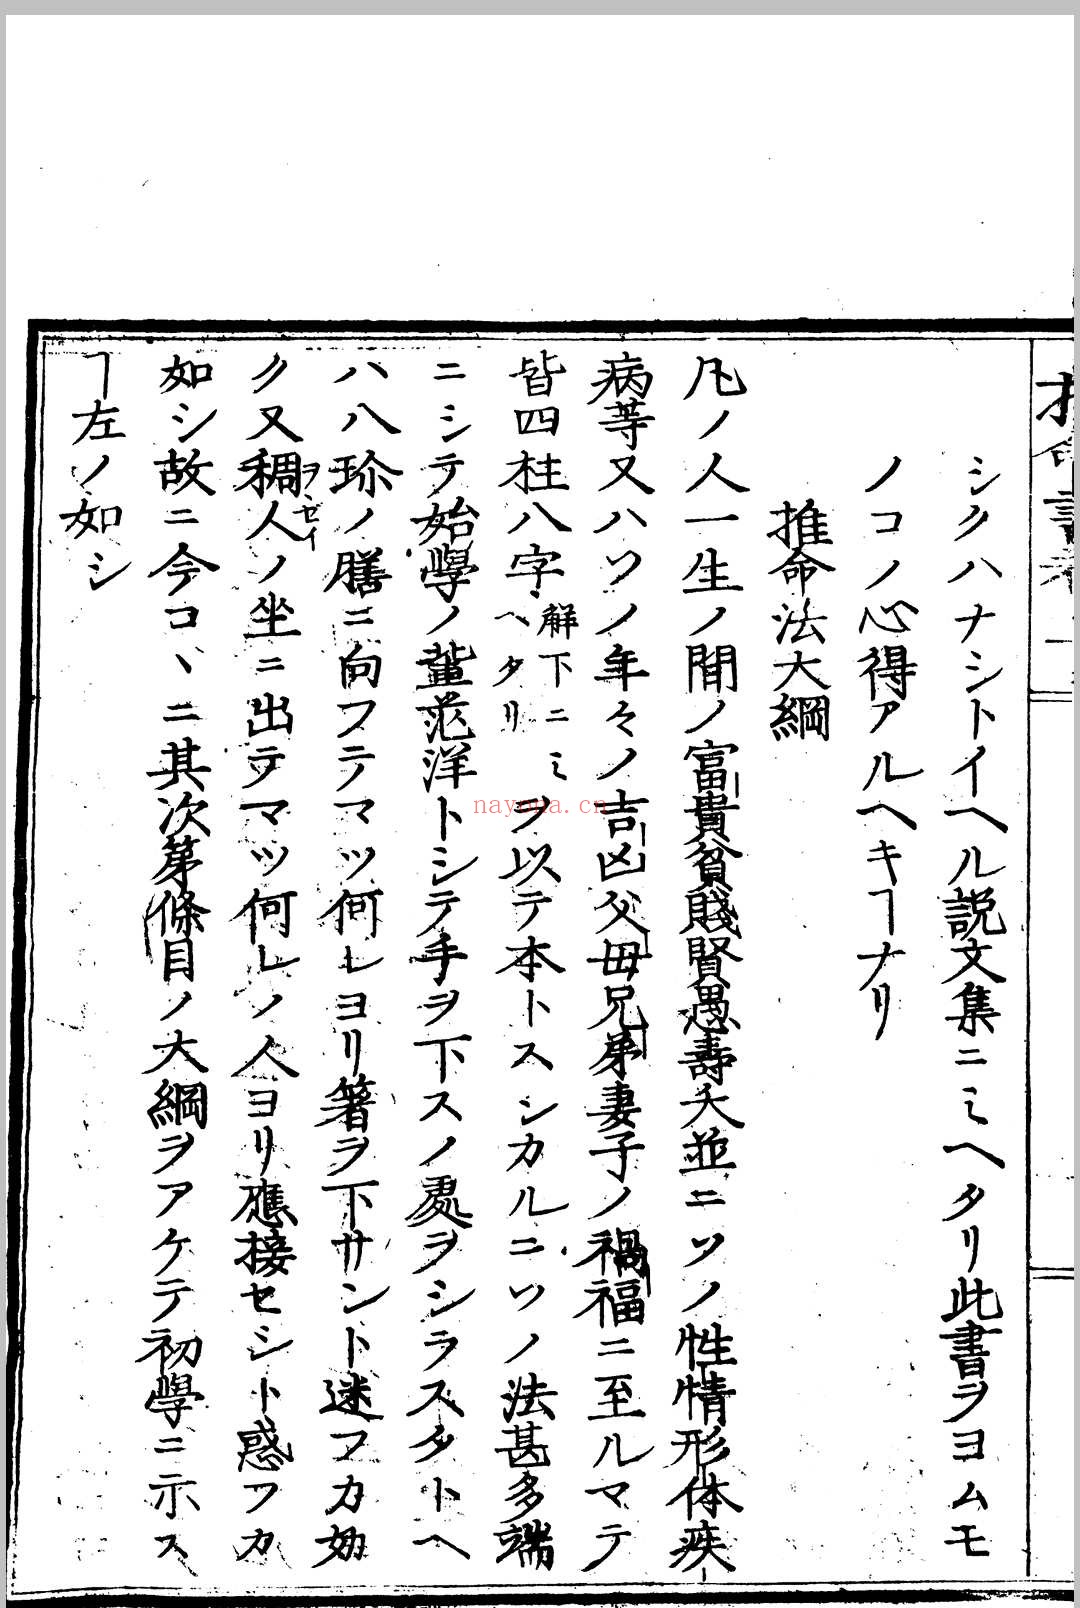 シクハナシトイヘル説文集ニミヘタリ此書ヲヨムモ
ノコノ心得アルヘキヿナリ
推命法大綱
凡ノ人一生ノ間ノ富貴貧賤賢愚壽夭並ニソノ性情形体疾
病等又ハソノ年々ノ吉凶父母兄弟妻子ノ禍福ニ至ルマテ
皆四柱八字解下ニミヘタリヲ以テ本トスシカルニソノ法甚多端
ニシテ始學ノ輩茫洋トシテ手ヲ下スノ處ヲシラスタトヘ
ハ八珍ノ膳ニ向フテマツ何レヨリ箸ヲ下サント迷フカ如
ヲヽセイ
ク又稠人ノ坐ニ出テマツ何レノ人ヨリ應接セシト惑フカ
如シ故ニ今コヽニ其次第條目ノ大綱ヲアケテ初學ニ示ス
ヿ左ノ如シ
nayona.cn